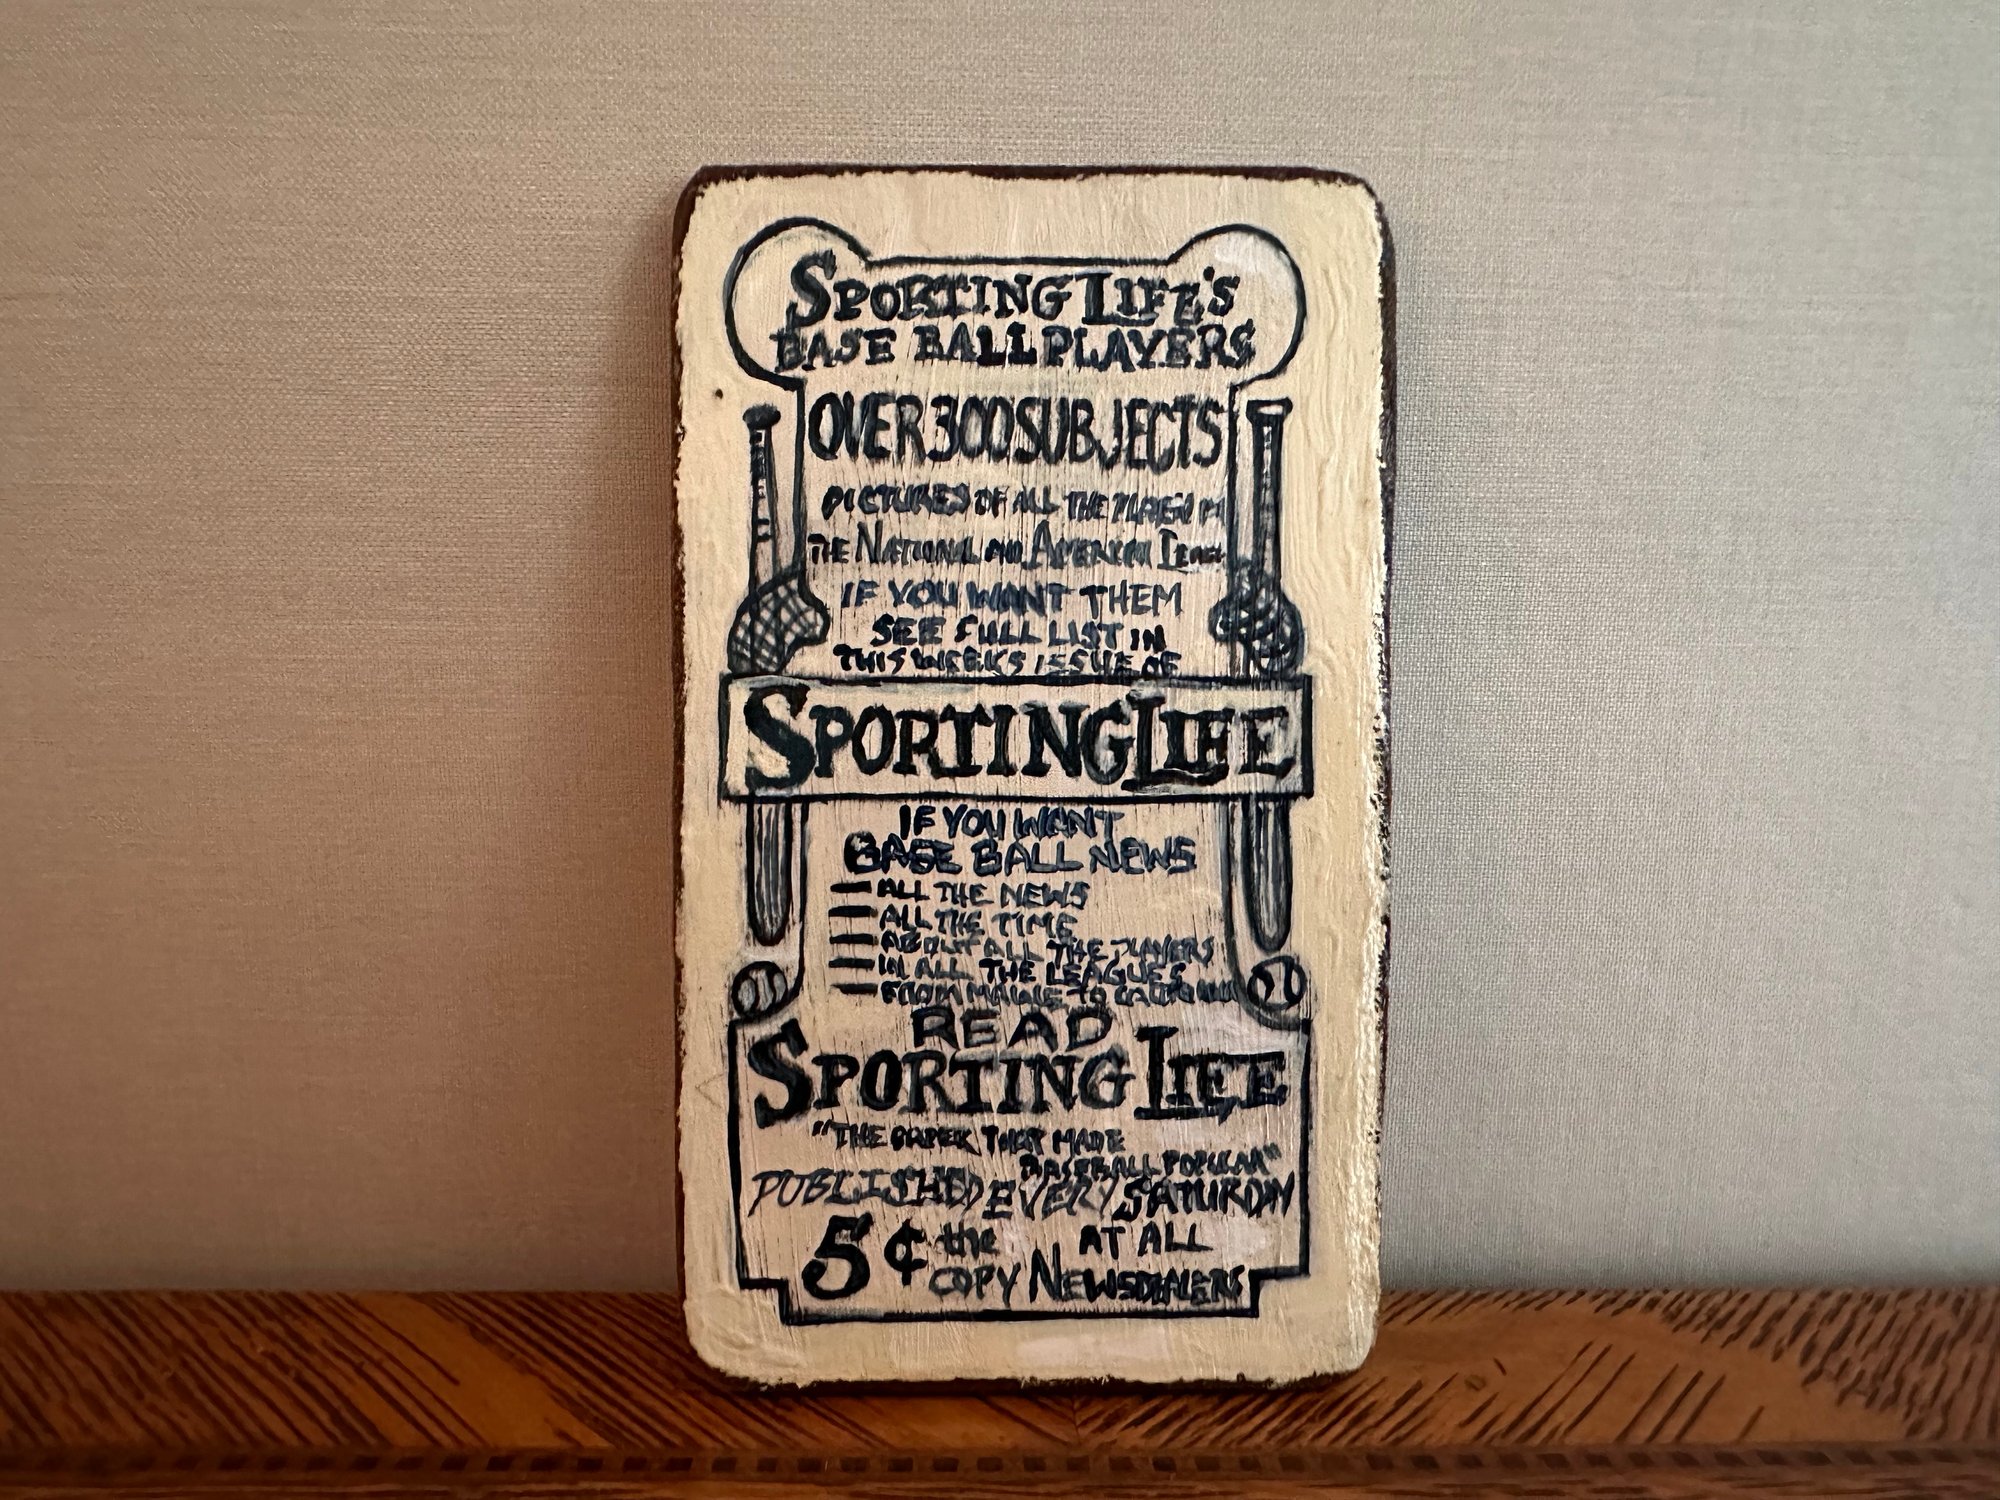 SPORTING LIFE'S
BASE BALL PLAYERS
OVER 300 SUBJECTS
PICTURES OF ALL THE
THE NATIONAL AMERICAN
IF YOU WANT THEM
SEE FULL LIST IN
THIS WEEKS ISSUE OF
SPORTING LIFE
IF YOU WANT
BASE BALL NEWS
— ALL THE NEWS
— ALL THE TIME
— ABOUT ALL THE PLAYERS
— IN ALL THE LEAGUES
— FROM MAINE TO
READ
SPORTING LIFE
"THE THAT MADE
BASEBALL POPULAR"
PUBLISHED EVERY SATURDAY
5¢ the AT ALL
COPY NEWSDEALERS